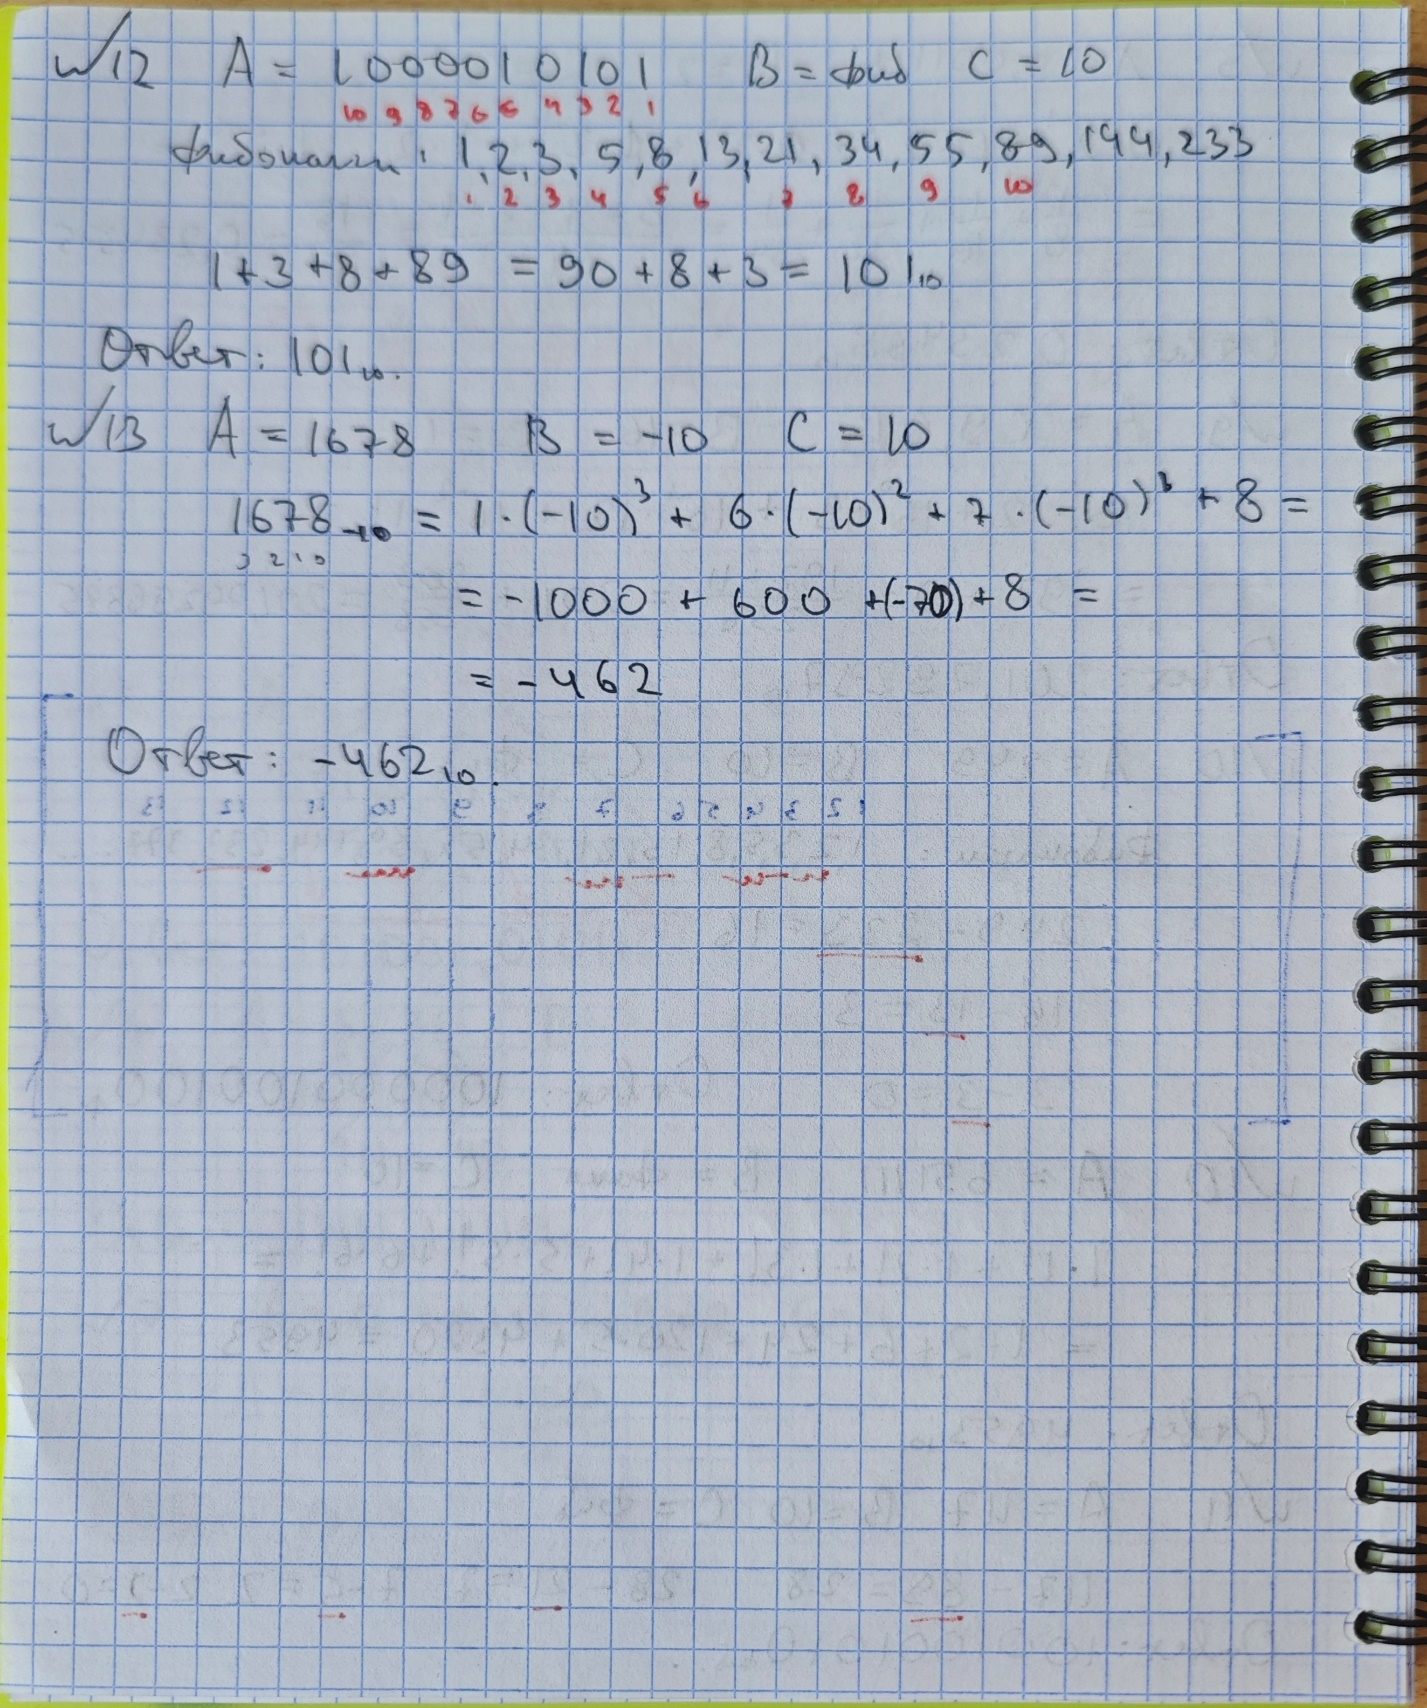 №12 A = 1000010101 B = фиб C = 10
10 9 8 7 6 5 4 3 2 1
Фибоначчи: 1, 2, 3, 5, 8, 13, 21, 34, 55, 89, 144, 233
1 2 3 4 5 6 7 8 9 10
1 + 3 + 8 + 89 = 90 + 8 + 3 = 101₁₀
Ответ: 101₁₀.
№13 A = 1678 B = -10 C = 10
1678₋₁₀ = 1·(-10)³ + 6·(-10)² + 7·(-10)¹ + 8 =
3 2 1 0
= -1000 + 600 +(-70) + 8 =
= -462
Ответ: -462₁₀.